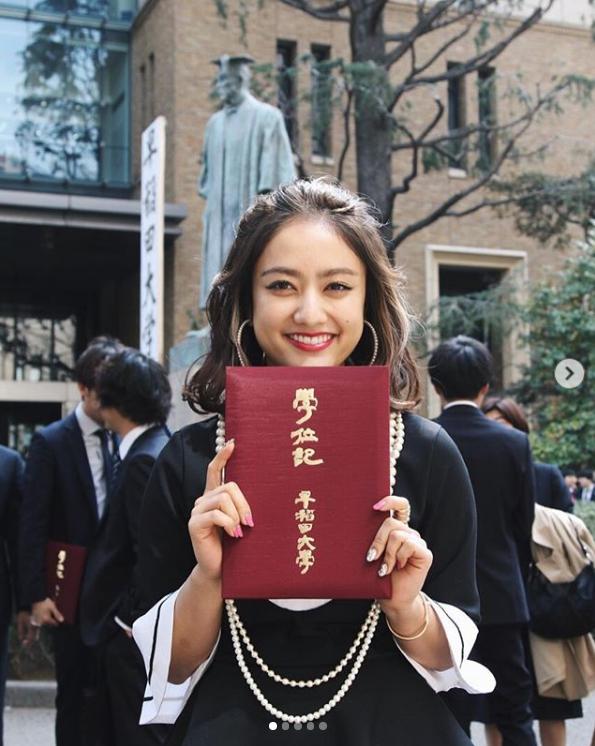 早稲田大学
學位記
早稲田大學
學位記